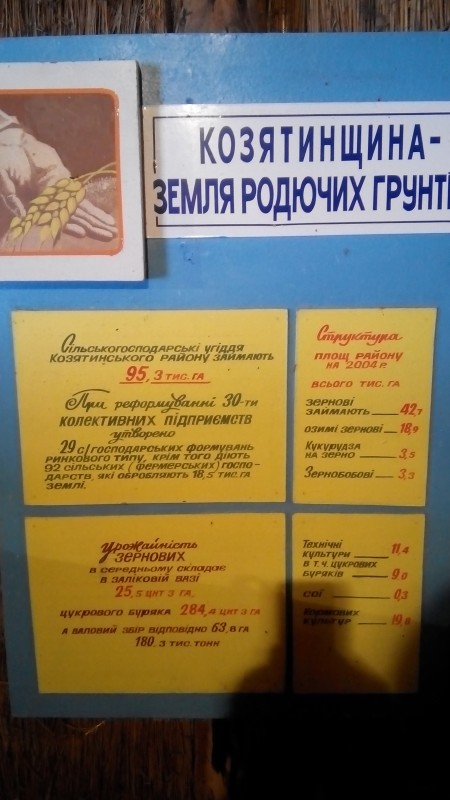 КОЗЯТИНЩИНА-
ЗЕМЛЯ РОДЮЧИХ ГРУНТІ
Сільськогосподарські угіддя
Козятинського району займають
95,3 тис. га
При реформуванні 30-ти
колективних підприємств
утворено
29 с/господарських формувань
ринкового типу, крім того діють
92 сільських (фермерських) госпо-
дарств, які обробляють 18,5 тис.га
землі.
Структура
площ району
на 2004 р.
всього тис. га
зернові
займають 42,7
озимі зернові 18,9
Кукурудза
на зерно 3,5
Зернобобові 3,3
Урожайність
зернових
в середньому складає
в заліковій вазі
25,5 цнт з га,
цукрового буряка 284,4 цнт з га
а валовий збір відповідно 63,8 га
180,3 тис. тонн
Технічні
культури 11,4
в т.ч. цукрових
буряків 9,0
сої 0,3
Кормових
культур